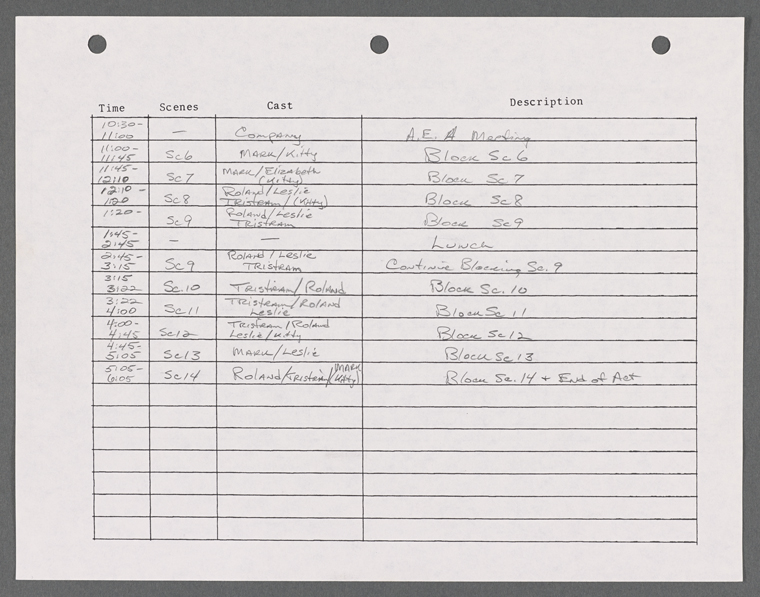 Time Scenes Cast Description
10:30-
11:00 — Company A.E.A Meeting
11:00-
11:45 Sc6 Mark/Kitty Block Sc6
11:45- Mark/Elizabeth
12:10 Sc7 (Kitty) Block Sc7
12:10- Roland/Leslie
1:20 Sc8 Tristram/(Kitty) Block Sc8
1:20- Roland/Leslie
Sc9 Tristram Block Sc9
1:45-
2:45 — — Lunch
2:45- Roland/Leslie
3:15 Sc9 Tristram Continue Blocking Sc. 9
3:15
3:22 Sc.10 Tristram/Roland Block Sc. 10
3:22 Tristram/Roland
4:00 Sc11 Leslie Block Sc 11
4:00- Tristram/Roland
4:45 Sc12 Leslie/Kitty Block Sc12
4:45-
5:05 Sc13 Mark/Leslie Block Sc13
5:05- Mark
6:05 Sc14 Roland/Tristram/(Kitty) Block Sc. 14 + End of Act